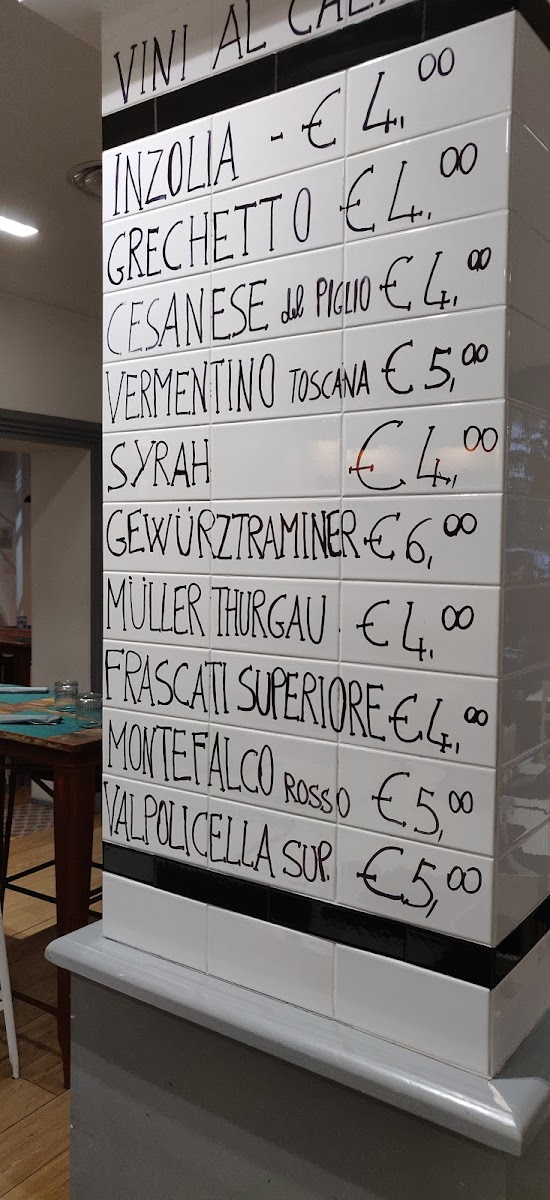 VINI AL
INZOLIA - € 4,00
GRECHETTO € 4,00
CESANESE del PIGLIO € 4,00
VERMENTINO TOSCANA € 5,00
SYRAH € 4,00
GEWÜRZTRAMINER € 6,00
MÜLLER THURGAU. € 4,00
FRASCATI SUPERIORE € 4,00
MONTEFALCO ROSSO € 5,00
VALPOLICELLA SUP. € 5,00